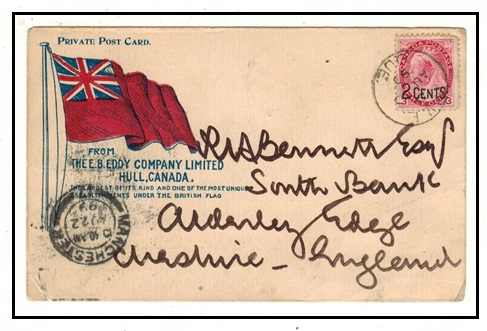 PRIVATE POST CARD.
CANADA POSTAGE
2 CENTS
3 3
FROM
THE E.B. EDDY COMPANY LIMITED
HULL, CANADA.
THE LARGEST OF ITS KIND AND ONE OF THE MOST UNIQUE
ESTABLISHMENTS UNDER THE BRITISH FLAG
R A Bennett Esq
South Bank
Alderley Edge
Cheshire - England
MANCHESTER